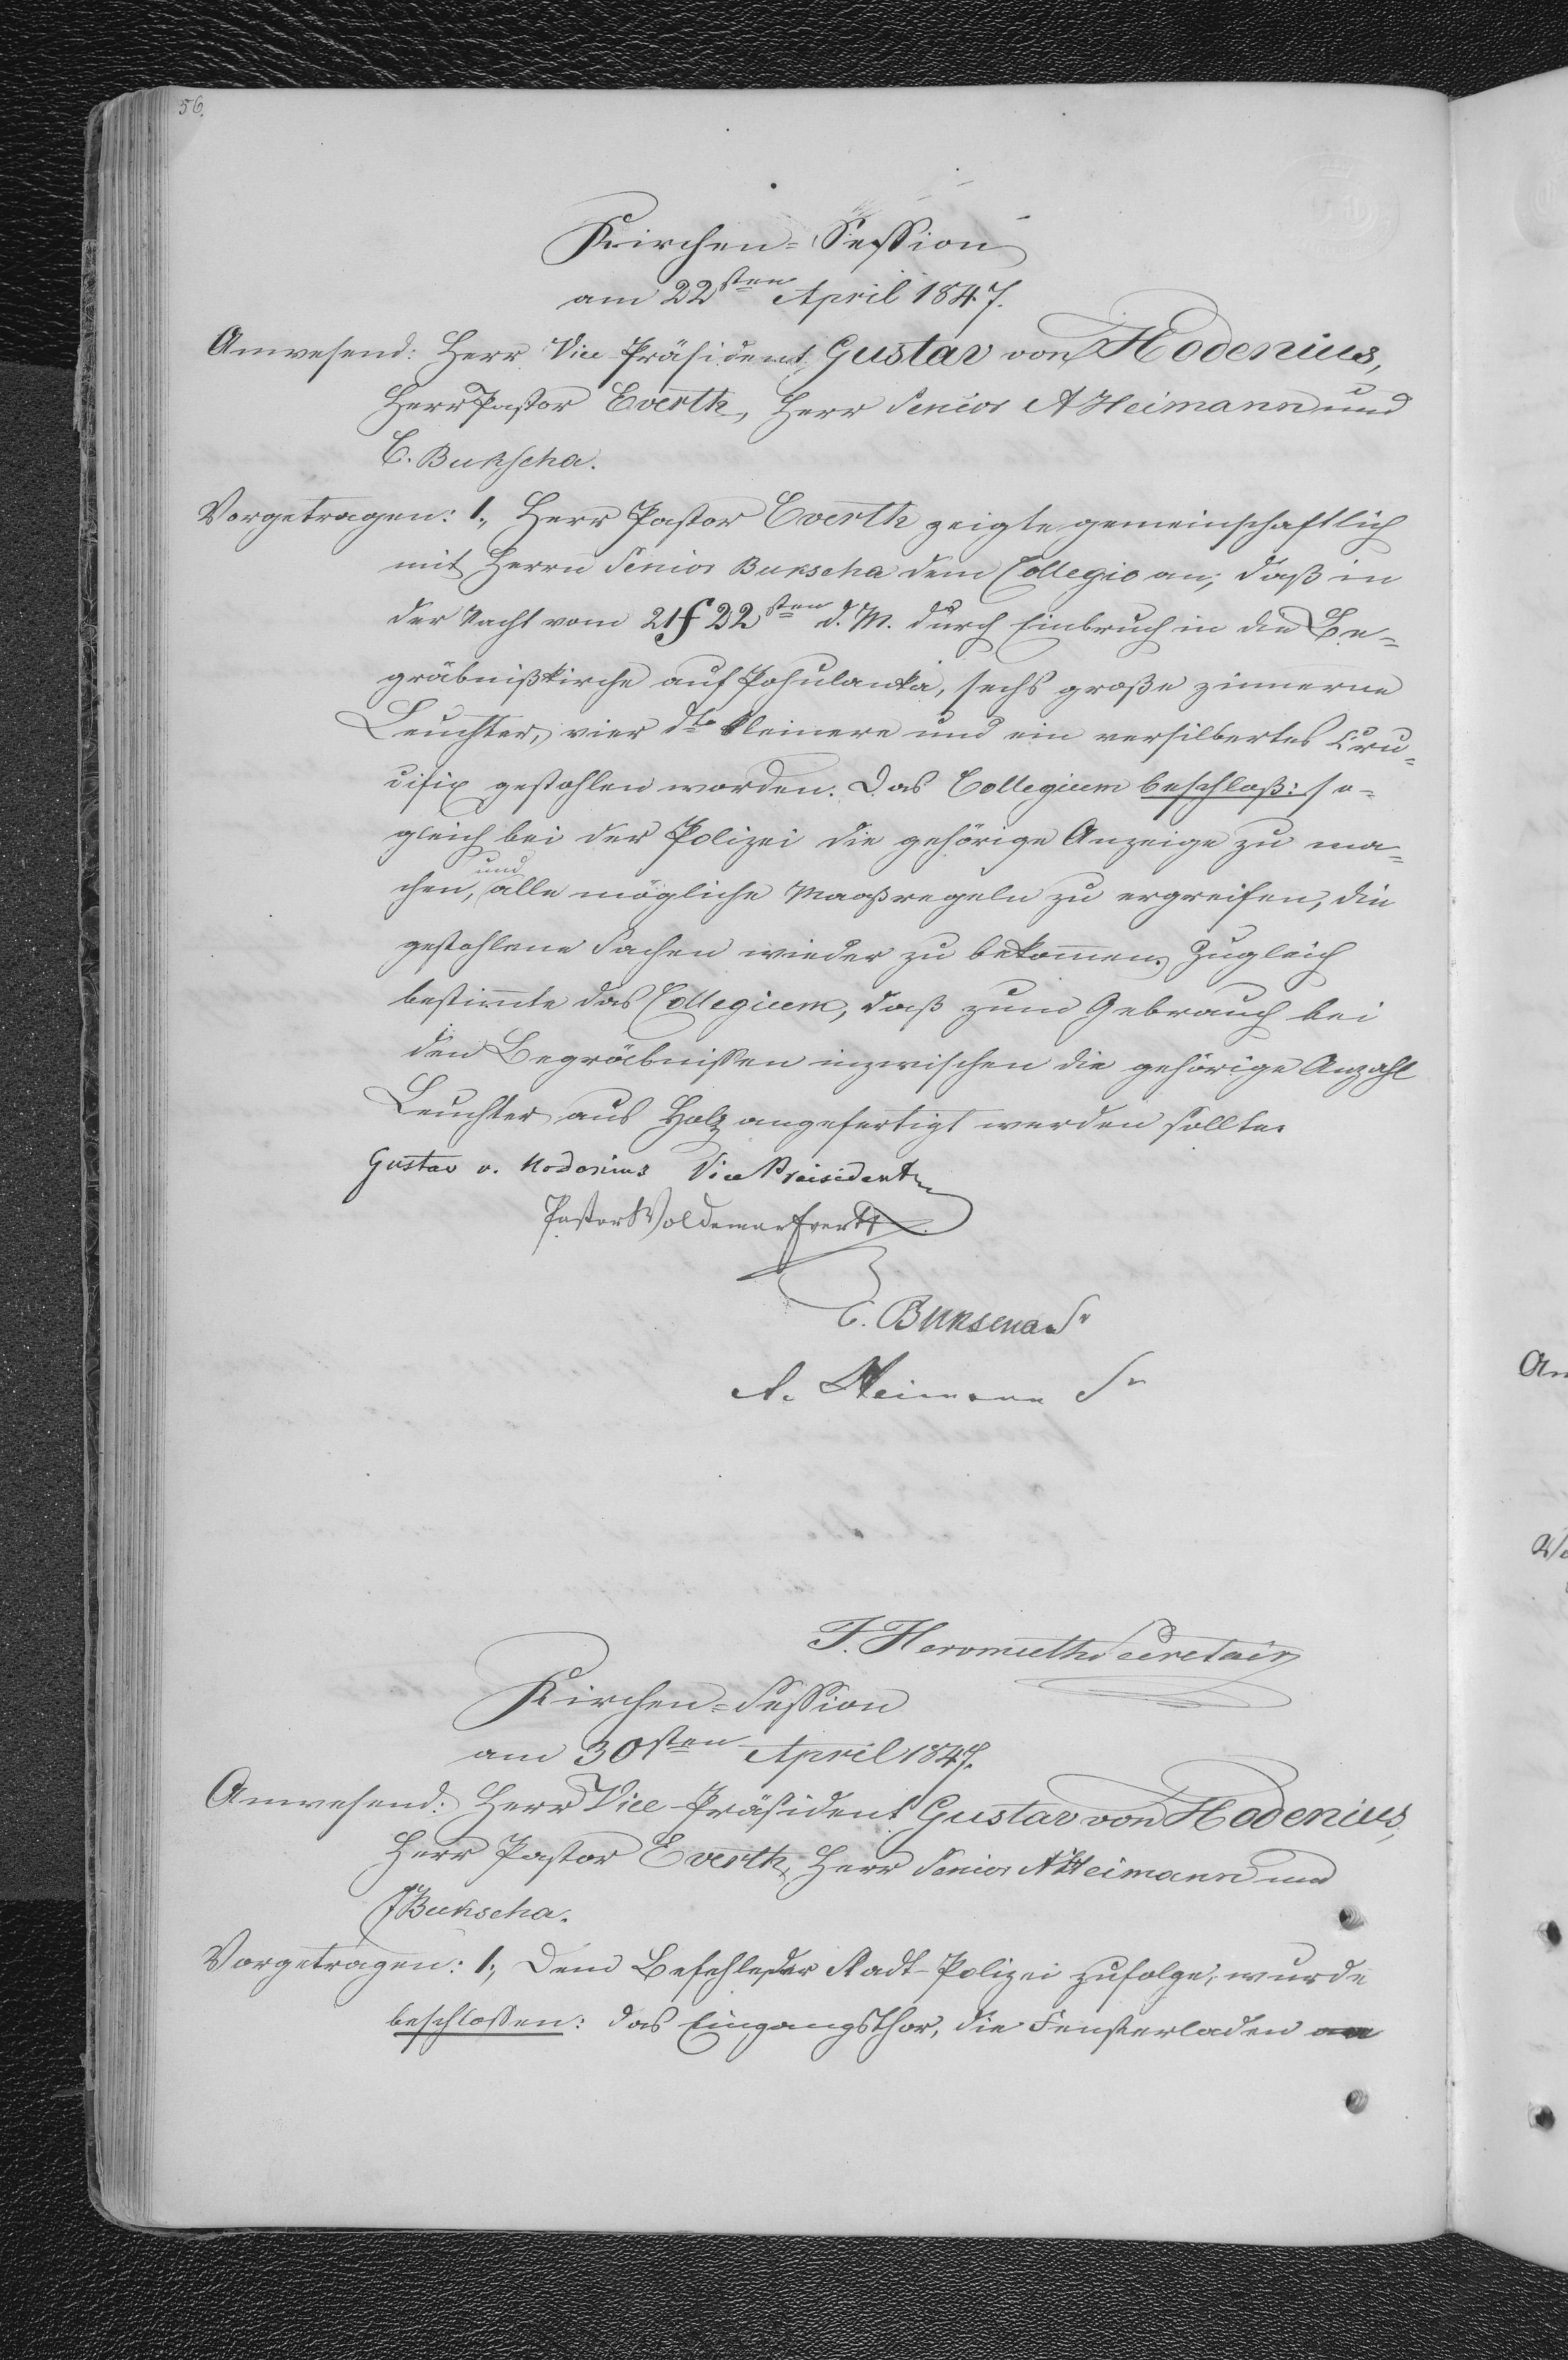 56.
Kirchen-Session
am 22sten April 1847.
Anwesend: Herr Vice-Präsident Gustav von Hodenius,
Herr Pastor Everth, Herr Senior A Heimann und
C. Bukscha.
Vorgetragen: 1., Herr Pastor Everth zeigte gemeinschaftlich
mit Herrn Senior Bukscha dem Collegio an, daß in
der Nacht vom 21/22sten d. M. durch Einbruch in die Be-
gräbnißkirche auf Pohulanka, sechs große zinnerne
Leuchter, vier dto kleinere und ein versilbertes Cru-
cifix gestohlen worden. Das Collegium beschloß: so-
gleich bei der Polizei die gehörige Anzeige zu ma-
chen, und alle mögliche Maaßregeln zu ergreifen, die
gestohlene Sachen wieder zu bekommen. Zugleich
bestimmte das Collegium, daß zum Gebrauch bei
den Begräbnißen inzwischen die gehörige Anzahl
Leuchter aus Holz angefertigt werden sollte.
Gustav v. Hodenius Vice Präsident
Pastor Woldemar Everth
C. Bukscha Sr
A. Heimann Sr
F. Hermuth Secretair
Kirchen-Session
am 30sten April 1847.
Anwesend: Herr Vice-Präsident Gustav von Hodenius,
Herr Pastor Everth, Herr Senior A Heimann und
Bukscha.
Vorgetragen: 1., Dem Befehle der Stadt-Polizei zufolge, wurde
beschlossen: das Eingangsthor, die Fensterladen
An